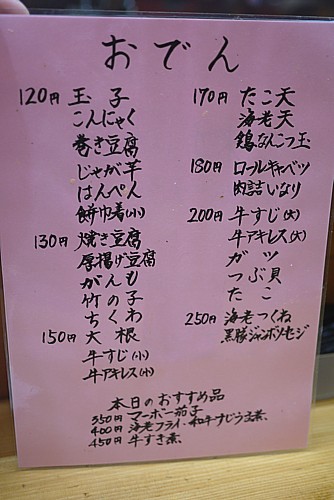 おでん
120円 玉子
こんにゃく
巻き豆腐
じゃが芋
はんぺん
餅巾着(小)
130円 焼き豆腐
厚揚げ豆腐
がんも
竹の子
ちくわ
150円 大根
牛すじ(小)
牛アキレス(小)
170円 たこ天
海老天
鶏なんこつ玉
180円 ロールキャベツ
肉詰いなり
200円 牛すじ(大)
牛アキレス(大)
ガツ
つぶ貝
たこ
250円 海老つくね
黒豚ジャンボソーセージ
本日のおすすめ品
350円 マーボー茄子
400円 海老フライ、和牛すじうま煮、
450円 牛すき煮